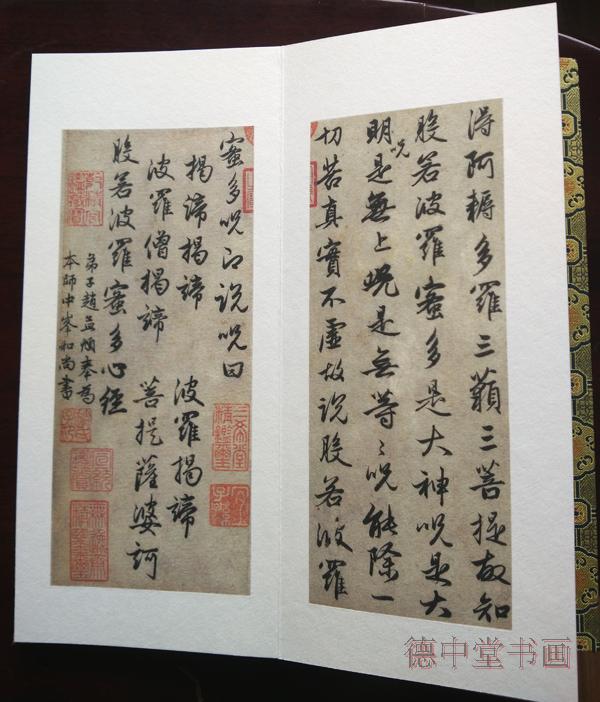 得阿耨多羅三藐三菩提故知
般若波羅蜜多是大神呪是大
明呪是無上呪是無等〻呪能除一
切苦真實不虛故說般若波羅
蜜多呪即說呪曰
揭諦揭諦 波羅揭諦
波羅僧揭諦 菩提薩婆訶
般若波羅蜜多心經
弟子趙孟頫奉為
本師中峯和尚書
三希堂精鑑璽
宜子孫
德中堂书画